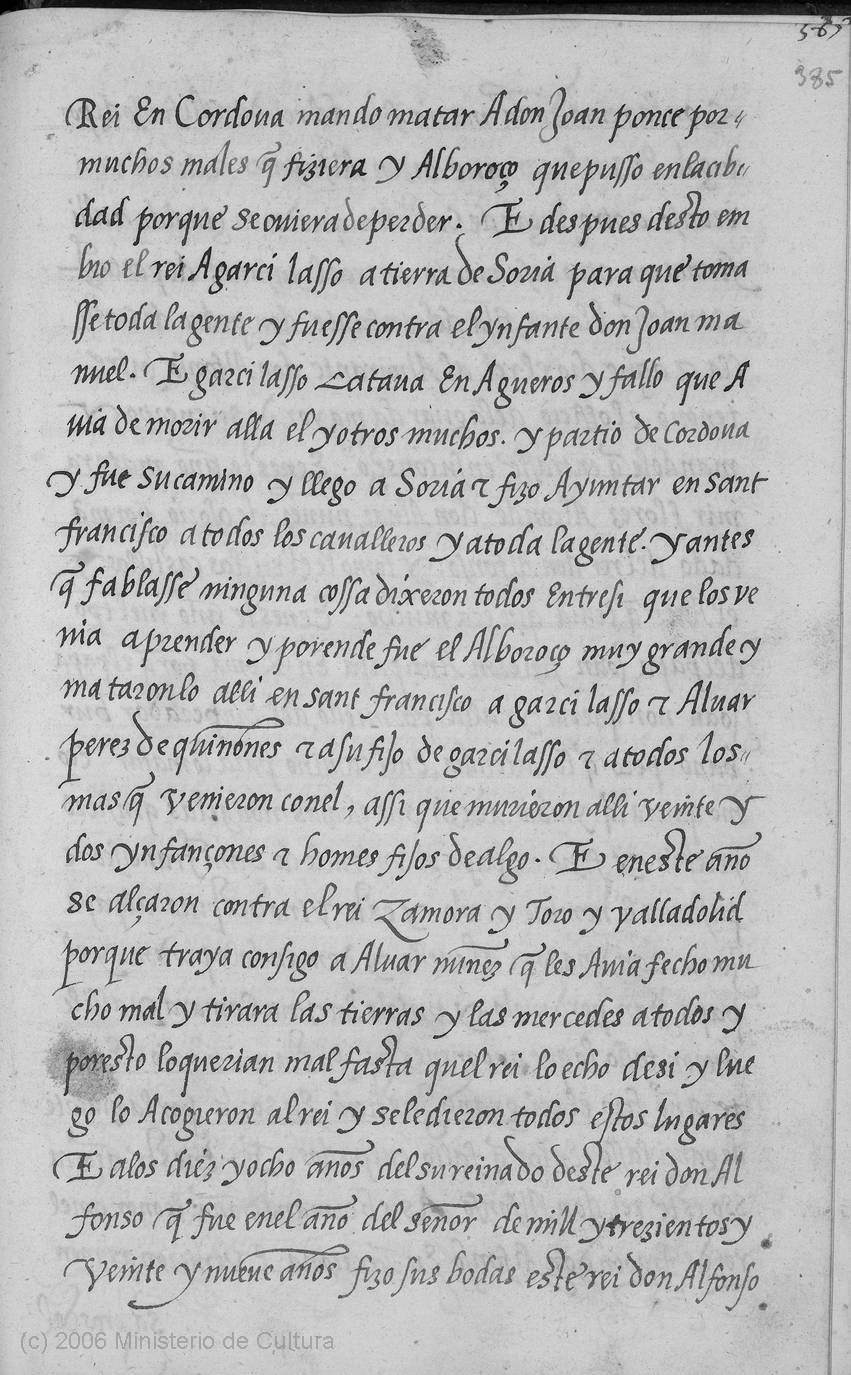 385
Rei En Cordoua mando matar A don Joan ponce por-
muchos males q̃ fiziera y Alboroço que pusso en la cib-
dad porque se ouiera de perder. E despues desto em
bio el rei A garci lasso a tierra de Soria para que toma
sse toda la gente y fuesse contra el ynfante don Joan ma
nuel. E garci lasso Cataua En Agueros y fallo que A
uia de morir alla el y otros muchos. y partio de Cordoua
y fue su camino y llego a Soria τ fizo Ayuntar en sant
francisco a todos los caualleros y a toda la gente. y antes
q̃ fablasse ninguna cossa dixeron todos Entresi que los ve
nia a prender y por ende fue el Alboroço muy grande y
mataron lo alli en sant francisco a garci lasso τ Aluar
perez de quiñones τ a su fijo de garci lasso τ a todos los-
mas q̃ venieron con el, assi que murieron alli veinte y
dos ynfançones τ homes fijos de algo. E en este año
se alçaron contra el rei Zamora y Toro y valladolid
porque traya consigo a Aluar nuñez q̃ les Auia fecho mu
cho mal y tirara las tierras y las mercedes a todos y
por esto lo querian mal fasta quel rei lo echo de si y lue
go lo Acogieron al rei y se le dieron todos estos lugares
E a los diez y ocho años del su reinado deste rei don Al
fonso q̃ fue en el año del señor de mill y trezientos y
veinte y nueue años fizo sus bodas este rei don Alfonso
(c) 2006 Ministerio de Cultura